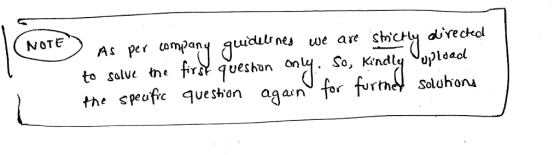 NOTE
As per company guidelines we are strictly directed
to solve the first question only. So, Kindly upload
the specific question again for further solutions